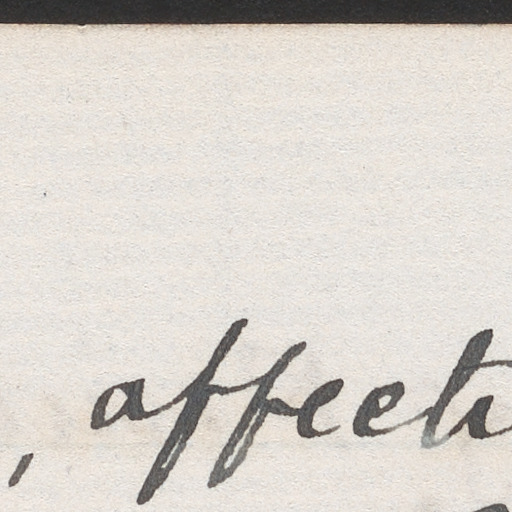 , affecti